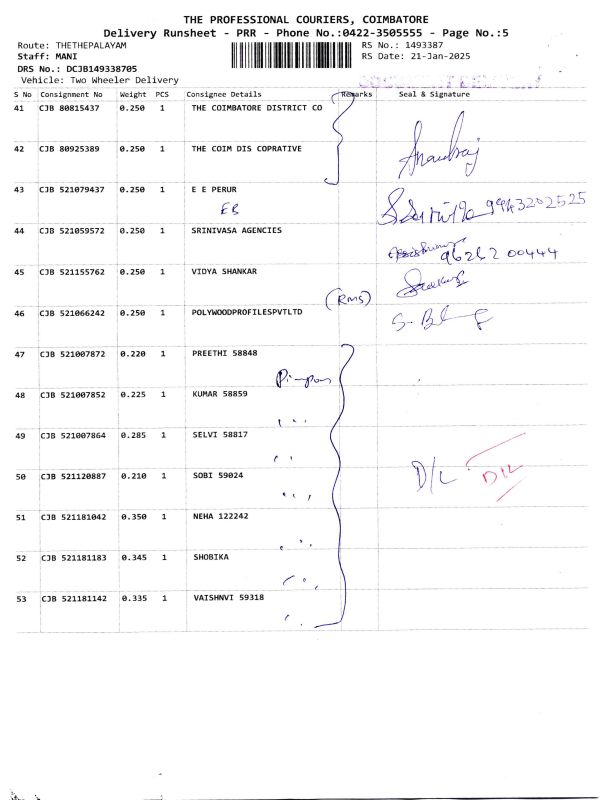 THE PROFESSIONAL COURIERS, COIMBATORE
Delivery Runsheet - PRR - Phone No.:0422-3505555 - Page No.:5
Route: THETHEPALAYAM RS No.: 1493387
Staff: MANI RS Date: 21-Jan-2025
DRS No.: DCJB149338705
Vehicle: Two Wheeler Delivery
S No Consignment No Weight PCS Consignee Details Remarks Seal & Signature
41 CJB 80815437 0.250 1 THE COIMBATORE DISTRICT CO
42 CJB 80925389 0.250 1 THE COIM DIS COPRATIVE
43 CJB 521079437 0.250 1 E E PERUR
EB 9943202525
44 CJB 521059572 0.250 1 SRINIVASA AGENCIES
96262 00444
45 CJB 521155762 0.250 1 VIDYA SHANKAR
(RMS)
46 CJB 521066242 0.250 1 POLYWOODPROFILESPVTLTD
47 CJB 521007872 0.220 1 PREETHI 58848
48 CJB 521007852 0.225 1 KUMAR 58859
49 CJB 521007864 0.285 1 SELVI 58817
50 CJB 521120887 0.210 1 SOBI 59024
D/L D/L
51 CJB 521181042 0.350 1 NEHA 122242
52 CJB 521181183 0.345 1 SHOBIKA
53 CJB 521181142 0.335 1 VAISHNVI 59318